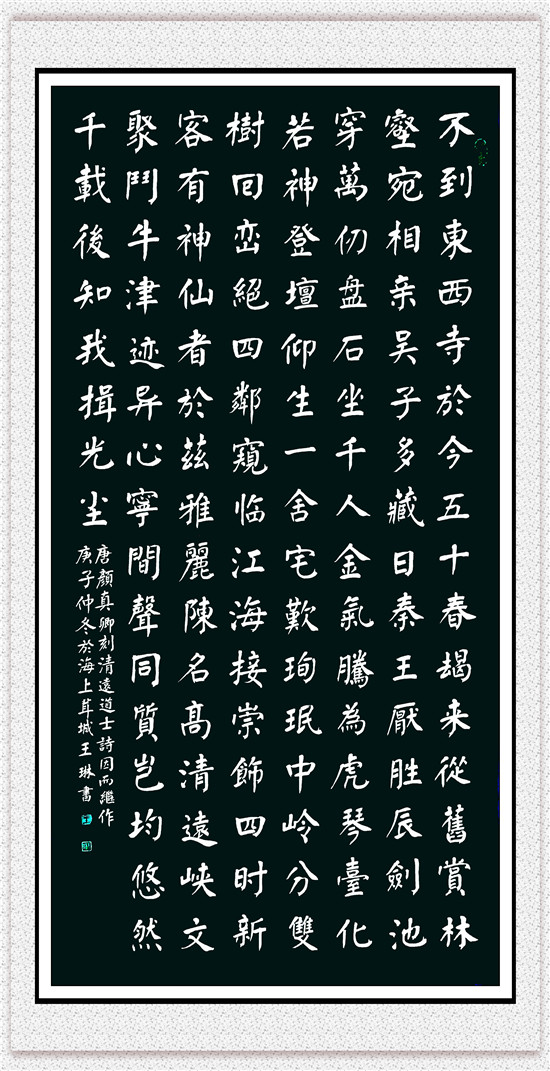 不到東西寺於今五十春朅来從舊賞林
壑宛相亲吴子多藏日秦王厭胜辰劍池
穿萬仞盘石坐千人金氣騰為虎琴臺化
若神登壇仰生一舍宅歎珣珉中岭分雙
樹回峦絕四鄰窺临江海接崇飾四时新
客有神仙者於茲雅麗陳名髙清遠峡文
聚鬥牛津迹异心寧間聲同質岂均悠然
千載後知我揖光尘
唐顏真卿刻清遠道士詩因而繼作
庚子仲冬於海上茸城王琳書